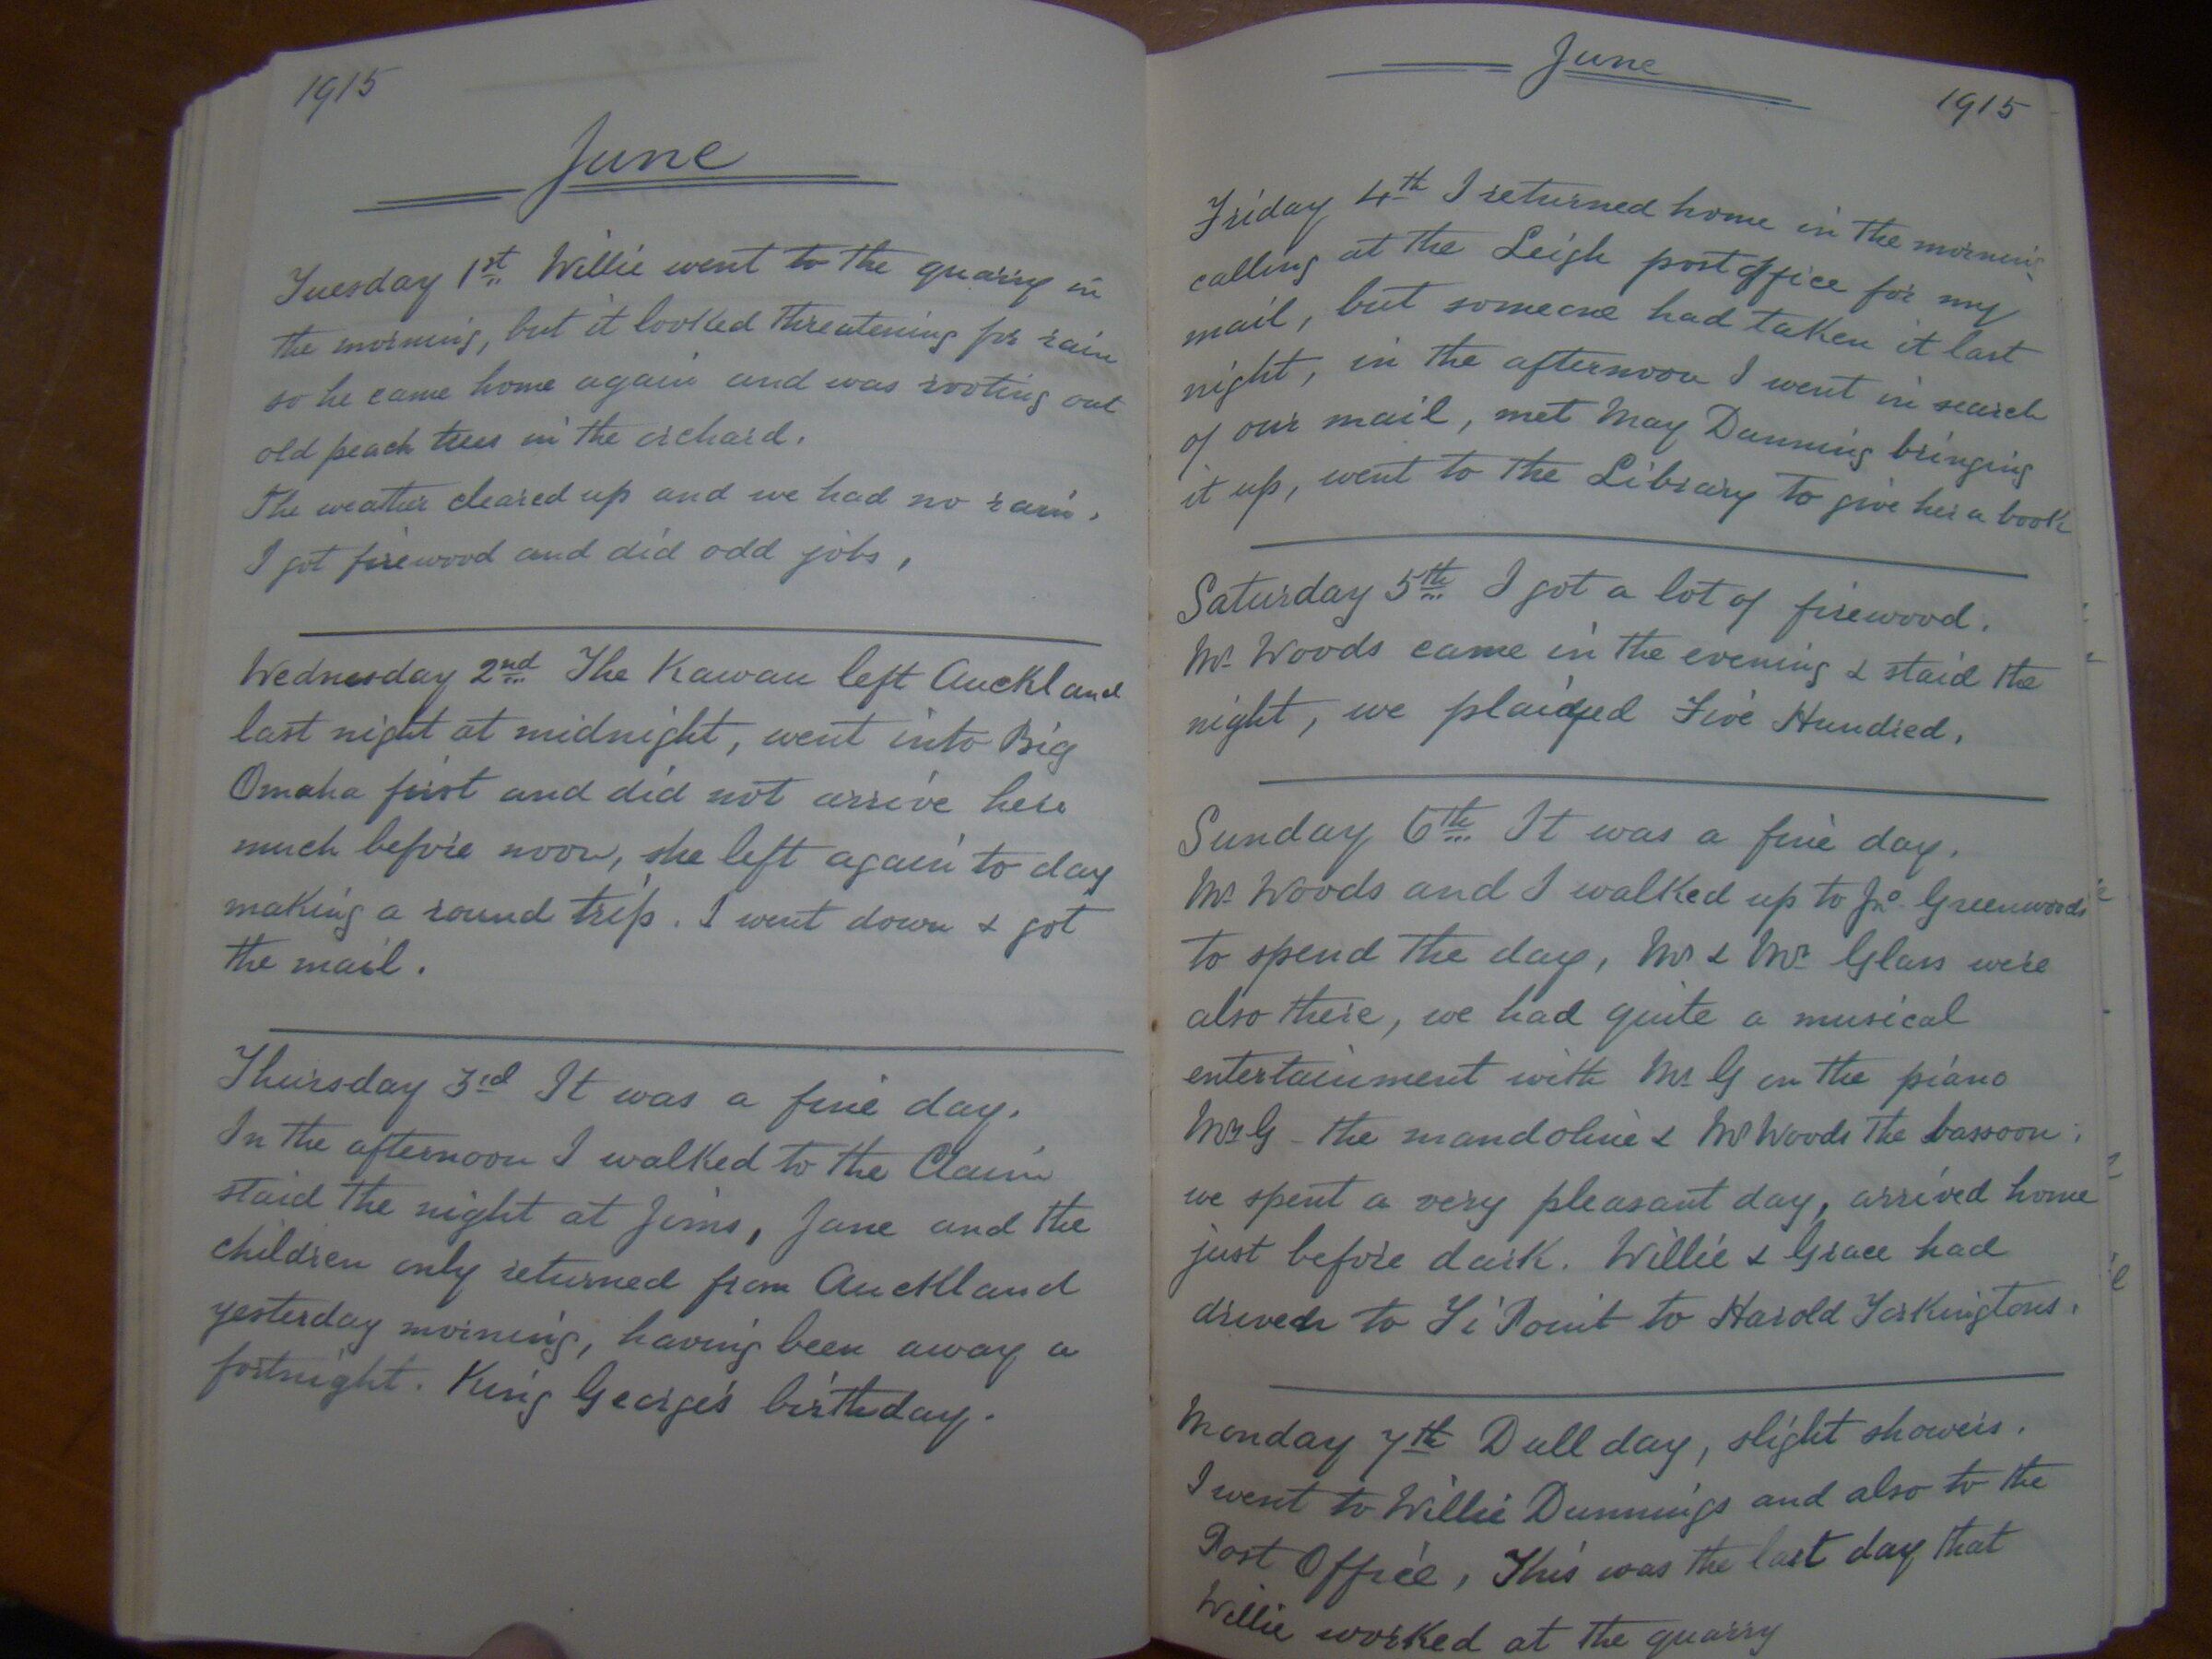 1915
June
Tuesday 1st Willie went to the quarry in
the morning, but it looked threatening for rain
so he came home again and was rooting out
old peach trees in the orchard.
The weather cleared up and we had no rain.
I got firewood and did odd jobs,
Wednesday 2nd The Kawau left Auckland
last night at midnight, went into Big
Omaha first and did not arrive here
much before noon, she left again to day
making a round trip. I went down & got
the mail.
Thursday 3rd It was a fine day.
In the afternoon I walked to the Claim
staid the night at Jims, Jane and the
children only returned from Auckland
yesterday morning, having been away a
fortnight. King George's birthday.
June
1915
Friday 4th I returned home in the morning
calling at the Leigh post office for my
mail, but someone had taken it last
night, in the afternoon I went in search
of our mail, met May Dunning bringing
it up, went to the Library to give her a book
Saturday 5th I got a lot of firewood.
Mr Woods came in the evening & staid the
night, we played Five Hundred.
Sunday 6th It was a fine day.
Mr Woods and I walked up to Jno Greenwoods
to spend the day, Mr & Mrs Glass were
also there, we had quite a musical
entertainment with Mr G on the piano
Mrs G - the mandoline & Mr Woods the bassoon,
we spent a very pleasant day, arrived home
just before dark. Willie & Grace had
driven to Ti Point to Harold Torkingtons.
Monday 7th Dull day, slight showers.
I went to Willie Dunnings and also to the
Post Office, This was the last day that
Willie worked at the quarry